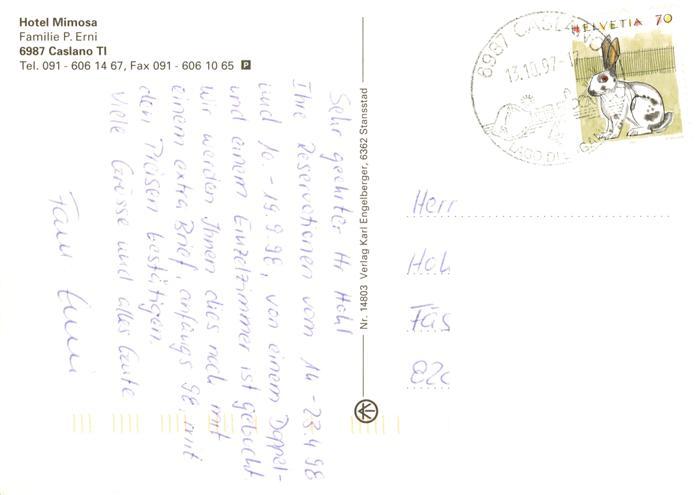 Hotel Mimosa
Familie P. Erni
6987 Caslano TI
Tel. 091 - 606 14 67, Fax 091 - 606 10 65 P
Sehr geehrter Hr Hohl
Ihre Reservationen vom 14 - 23.4 98
und 10. - 19. 9 98, von einem Doppel-
und einem Einzelzimmer ist gebucht
Wir werden Ihnen dies noch mit
einem extra Brief, anfangs 98, mit
den Preisen bestätigen.
Viele Grüsse und alles Gute
Fam Erni
Nr. 14803 Verlag Karl Engelberger, 6362 Stansstad
HELVETIA 70
6987 CASLANO
13.10.97-17
LAGO DI LUGANO
Herr
Hoh
Fäs